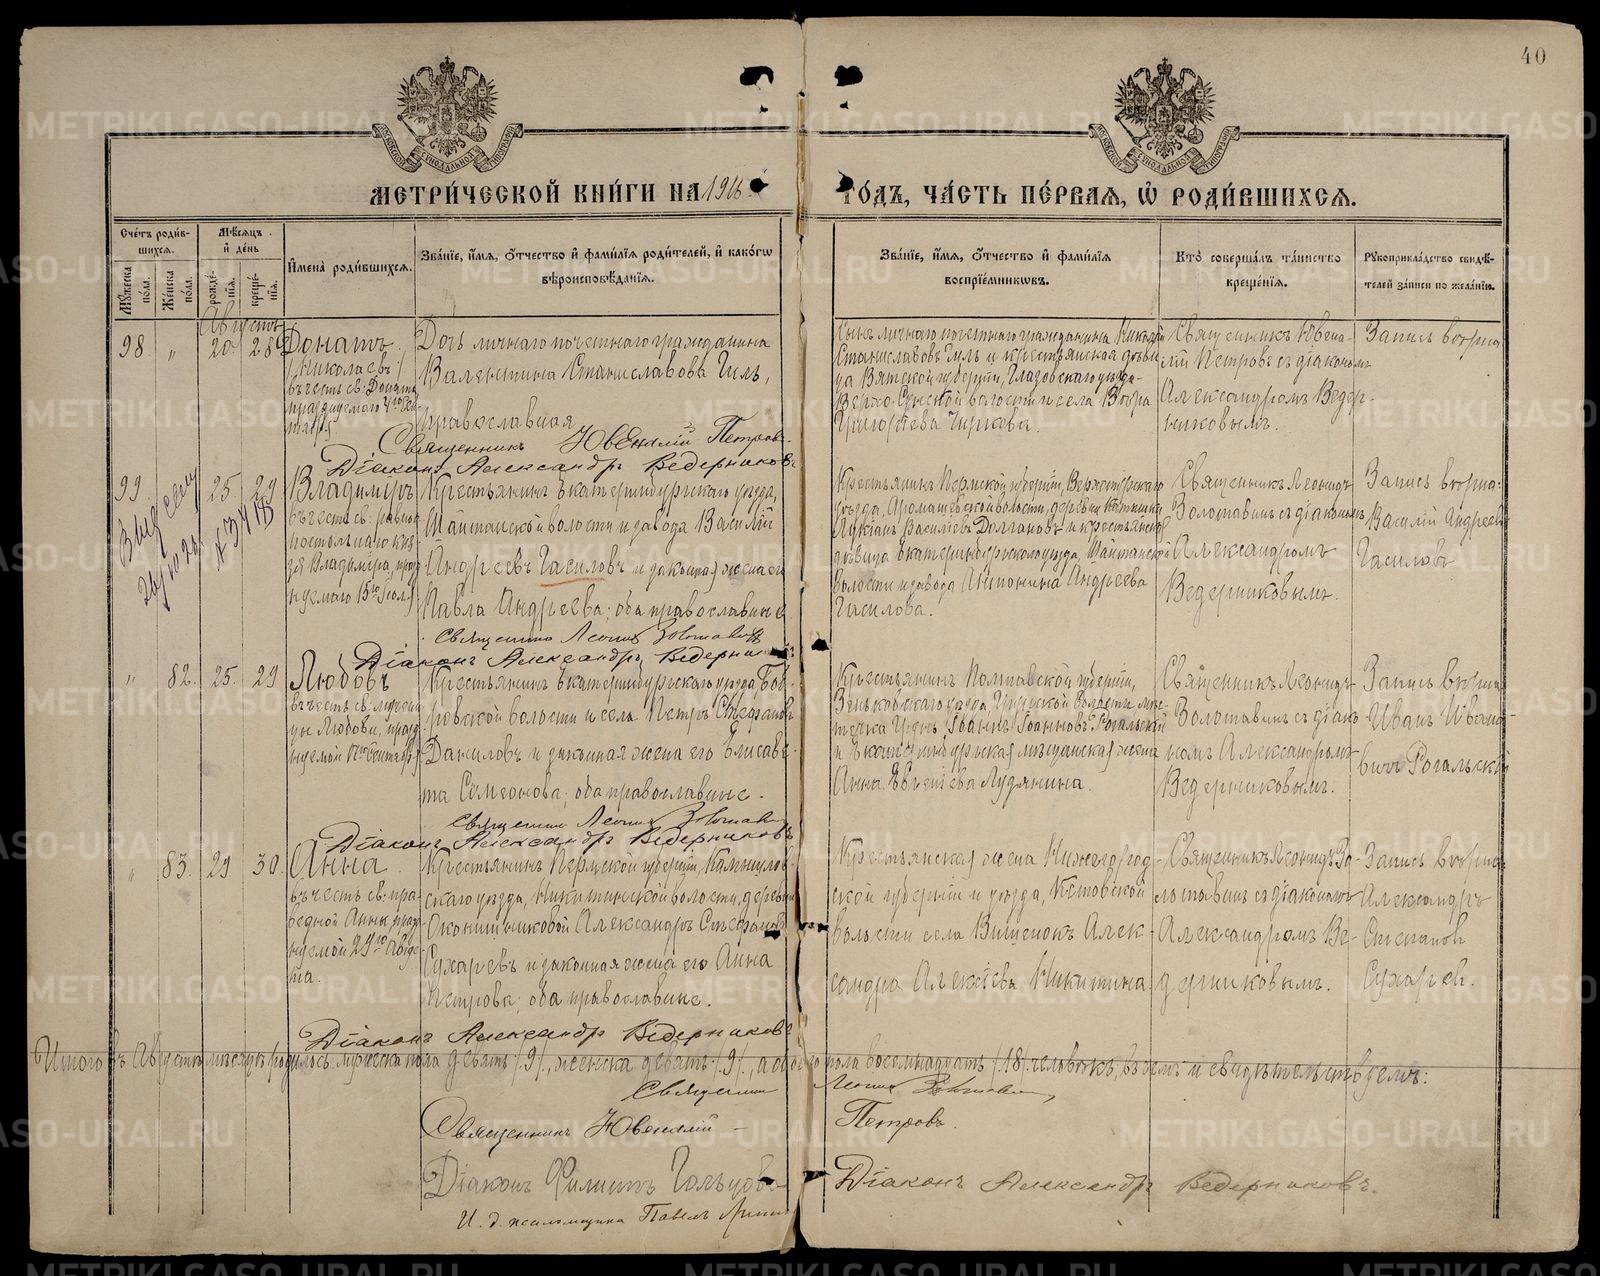 40
МОСКОВСКОЙ СѴНОДАЛЬНОЙ ТИПОГРАФІИ
МОСКОВСКОЙ СѴНОДАЛЬНОЙ ТИПОГРАФІИ
МЕТРИ́ЧЕСКОЙ КНИ́ГИ НА 1916
ГОДЪ, ЧА́СТЬ ПЕ́РВАЯ, Ѡ РОДИ́ВШИХСЯ.
Счетъ родив-
шихся.
Мѣсяцъ
и день
Мужеска пола.
Женска пола.
рожде-
нія.
креще-
нія.
Имена родившихся.
Званіе, имя, отчество и фамилія родителей, и какогѡ
вѣроисповѣданія.
Званіе, имя, отчество и фамилія
воспріемниковъ.
Кто совершалъ таинство
крещенія.
Рукоприкладство свидѣ-
телей записи по желанію.
Августъ
98 " 20 28
Донатъ
/Николаевъ/
въ честь св. Доната
празднуемаго
Дочь личнаго почетнаго гражданина
Валентина Станиславова Гиль,
православная
Священникъ Ювеналій Петровъ
Діаконъ Александръ Ведерниковъ
Сынъ личнаго почетнаго гражданина Николай
Станиславовъ Гиль и крестьянская дѣви-
ца Вятской губерніи, Глазовскаго уѣзда
волости и села Вѣра
Григорьева Чиркова.
Священникъ Ювена-
лій Петровъ съ діакономъ
Александромъ Ведер-
никовымъ.
Запись вѣрна
99 25 29
Выд.
Владиміръ
въ честь св. равно-
апостольнаго кня-
зя Владиміра, праз-
нуемаго 15го Іюля
Крестьянинъ Екатеринбургскаго уѣзда,
Шайтанской волости и завода Василій
Андреевъ Гасиловъ и законная жена его
Павла Андреева; оба православные
Священникъ Леонидъ Золотавинъ
Діаконъ Александръ Ведерниковъ
Крестьянинъ Пермской губерніи, Верхотурскаго
уѣзда, Арамашевской волости, деревни
Лукіанъ Васильевъ Долгановъ и крестьянская
дѣвица Екатеринбургскаго уѣзда, Шайтанской
волости и завода Антонина Андреева
Гасилова.
Священникъ Леонидъ
Золотавинъ съ діакономъ
Александромъ
Ведерниковымъ.
Запись вѣрна:
Василій Андреевъ
Гасиловъ
" 82. 25. 29
Любовь
въ честь св. мучени-
цы Любови, празд-
нуемой 17го Сентября
Крестьянинъ Екатеринбургскаго уѣзда, Боб-
ровской волости и села Петръ Стефановъ
Даниловъ и законная жена его Елисаве-
та Симеонова; оба православные.
Священникъ Леонидъ Золотавинъ
Діаконъ Александръ Ведерниковъ
Крестьянинъ Полтавской губерніи,
Зеньковскаго уѣзда, волости, мѣс-
течка Іоаннъ Іоанновъ Рогальскій
и Екатеринбургская мѣщанская жена
Анна Евгеніева Лудянина.
Священникъ Леонидъ
Золотавинъ съ діако-
номъ Александромъ
Ведерниковымъ.
Запись вѣрна
Иванъ Ивано-
вичъ Рогальскій
" 83. 29 30.
Анна
въ честь св. пра-
ведной Анны праз-
нуемой 25го Авгус-
та.
Крестьянинъ Пермской губерніи, Камышлов-
скаго уѣзда, Никитинской волости, деревни
Александръ Стефановъ
Сухаревъ и законная жена его Анна
Петрова; оба православные.
Діаконъ Александръ Ведерниковъ
Крестьянская жена Нижегород-
ской губерніи и уѣзда, Кстовской
волости села Вишенокъ Алек-
сандра Алексѣева Никитина.
Священникъ Леонидъ Зо-
лотавинъ съ діакономъ
Александромъ Ве-
дерниковымъ.
Запись вѣрна
Александръ
Степановъ
Сухаревъ.
Итого въ Августѣ мѣсяцѣ родилось мужеска пола девять /9/, женска девять /9/, а обоего пола восемнадцать /18/ человѣкъ, въ чемъ и свидѣтельствуемъ:
Священникъ Леонидъ Золотавинъ
Священникъ Ювеналій Петровъ.
Діаконъ Филиппъ Гальцовъ
Діаконъ Александръ Ведерниковъ.
И. д. псаломщика Павелъ
METRIKI.GASO-URAL.RU